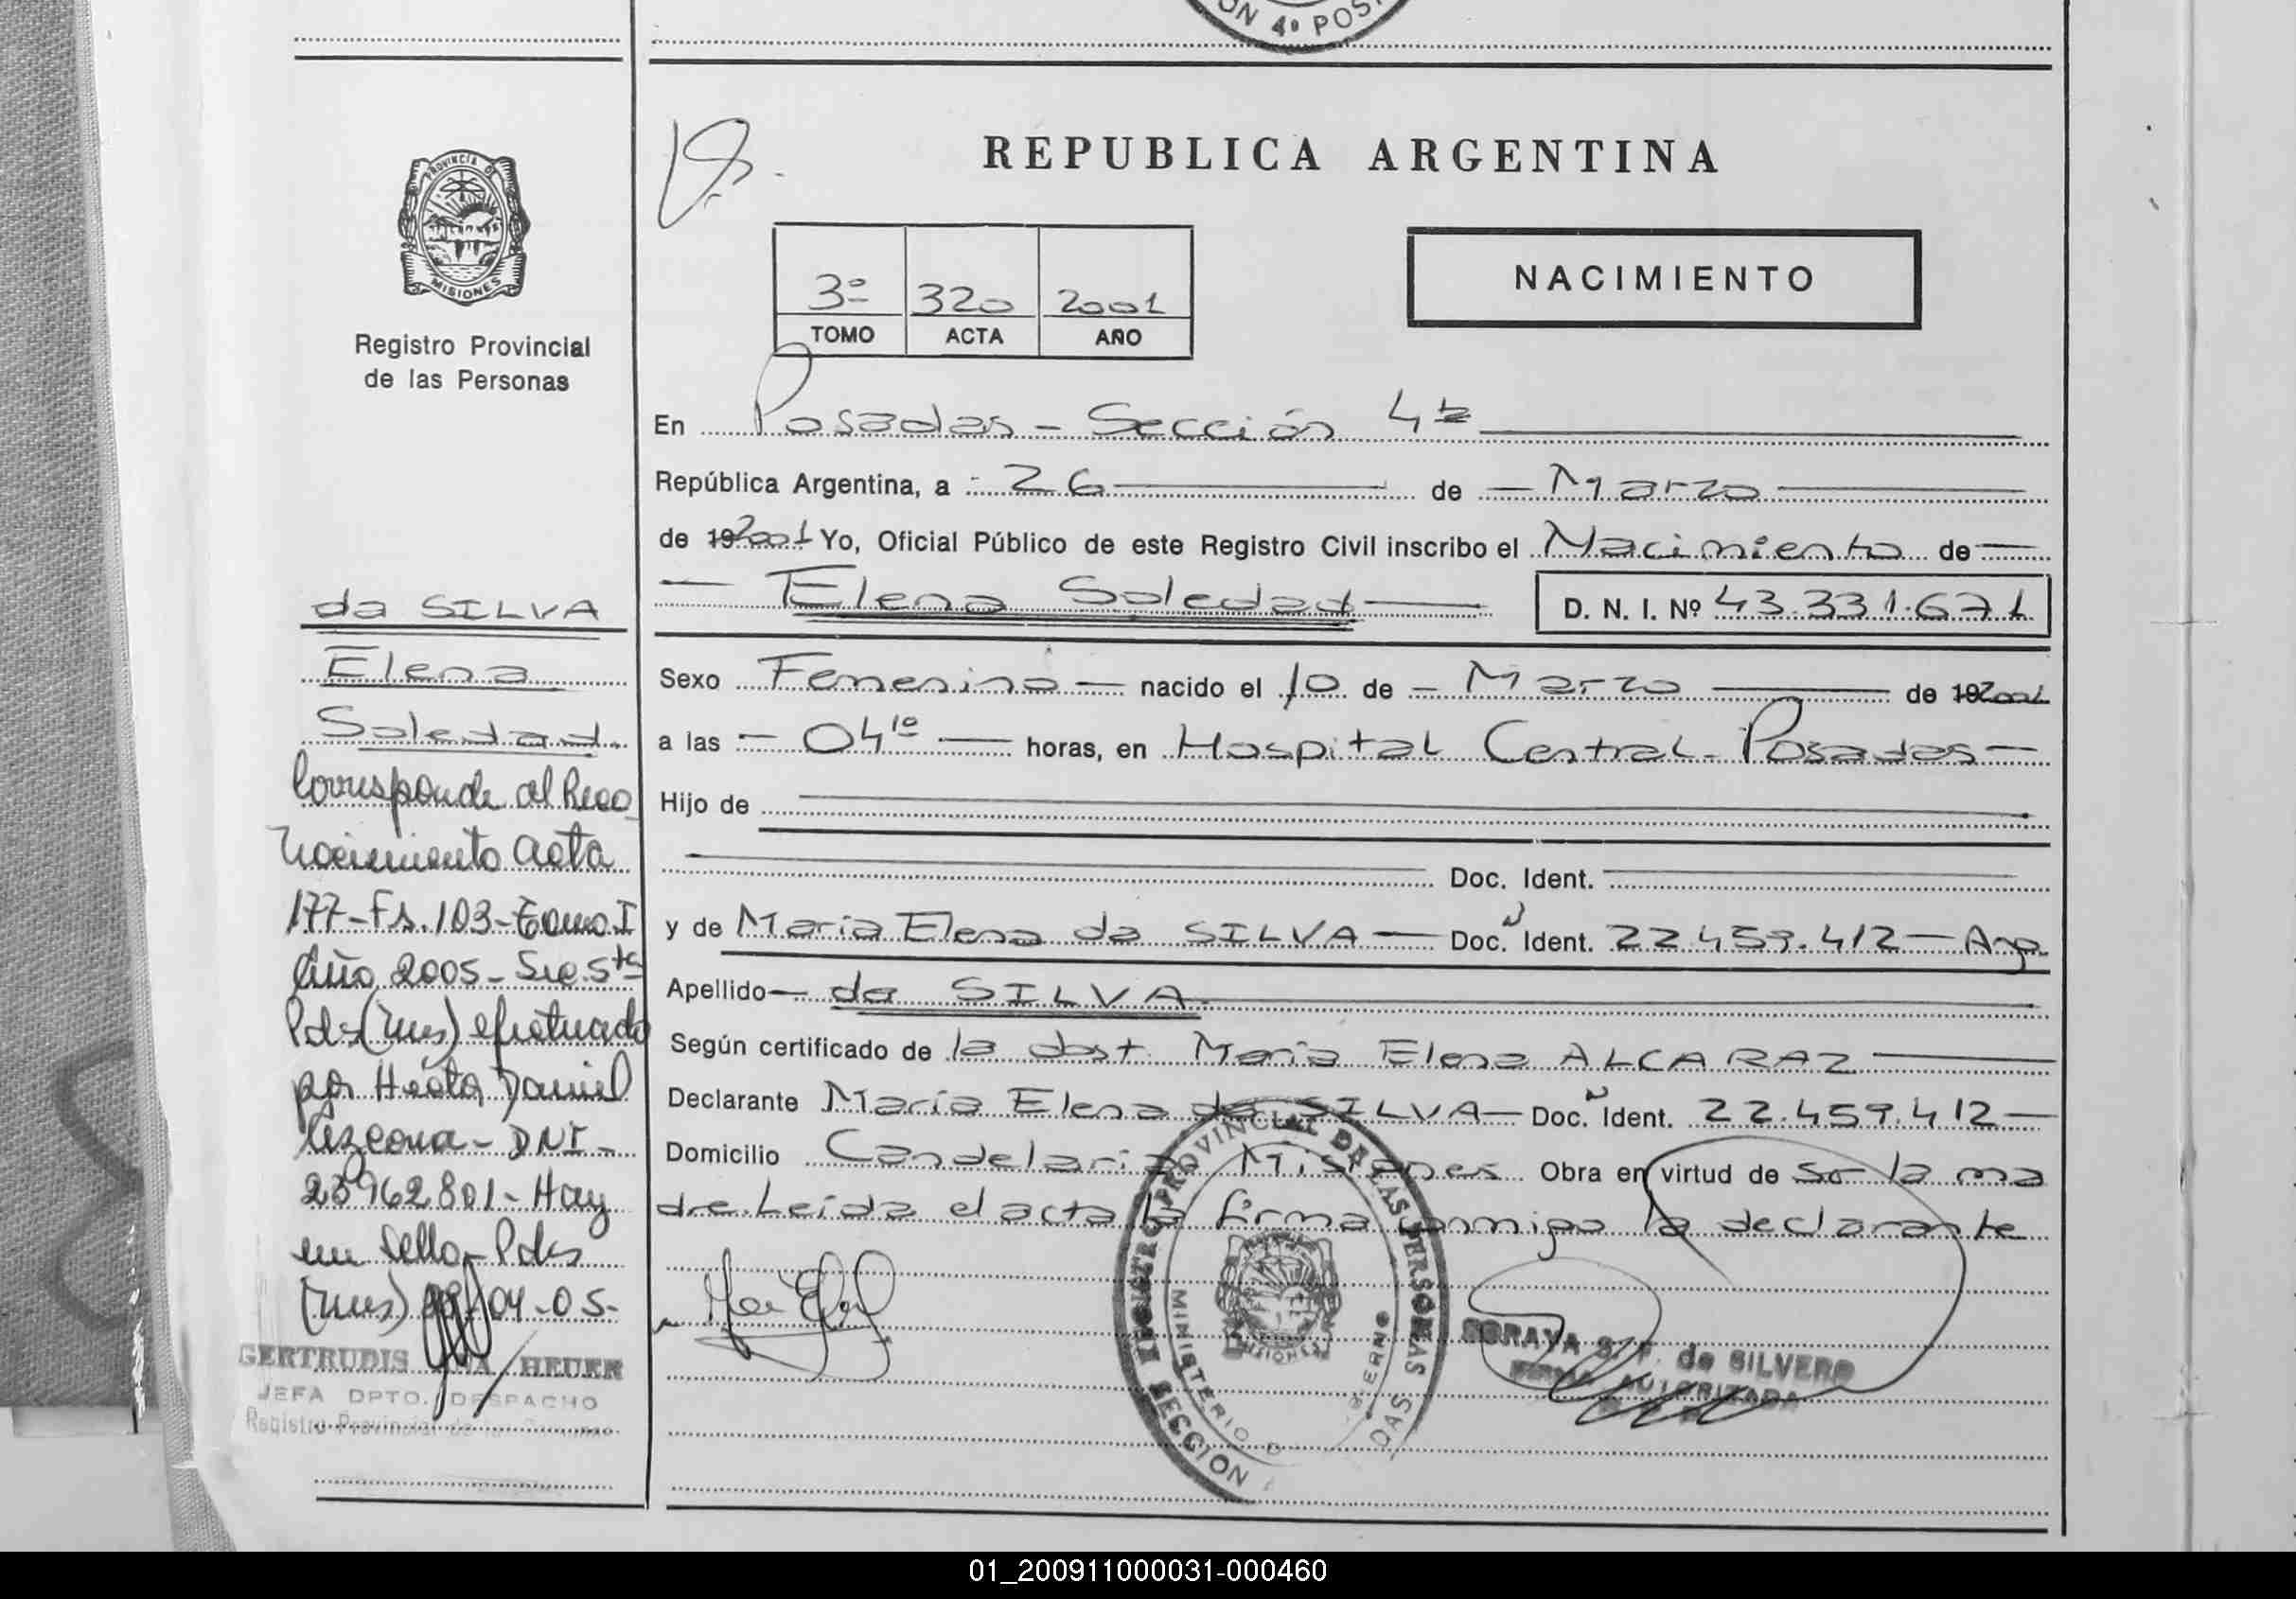 ON 4º POS
REPUBLICA ARGENTINA
PROVINCIA DE
MISIONES
Registro Provincial
de las Personas
3º 320 2001
TOMO ACTA AÑO
NACIMIENTO
En Posadas - Sección 4ª
República Argentina, a 26 de Marzo
de 192001 Yo, Oficial Público de este Registro Civil inscribo el Nacimiento de
Elena Soledad D. N. I. Nº 43.331.671
Sexo Femenino nacido el 10 de Marzo de 192001
a las 04¹⁰ horas, en Hospital Central - Posadas
Hijo de
Doc. Ident.
y de Maria Elena da SILVA Doc. N Ident. 22.459.412 - Arg.
Apellido da SILVA
Según certificado de la obst. Maria Elena ALCARAZ
Declarante María Elena da SILVA Doc. N Ident. 22.459.412
Domicilio Candelaria Misiones Obra en virtud de ser la ma
dre. Leída el acta la firma conmigo la declarante
da SILVA
Elena
Soledad.
Corresponde al Reco
nocimiento acta
177 - Fs. 103 - Tomo I
Año 2005 - Sec. 5ta
Pdas (Mnes) efectuado
por Héctor Daniel
Lezcona - DNI -
23962801 - Hay
un sello - Pdas
(Mnes) 04-05-
GERTRUDIS HEUER
JEFA DPTO. DESPACHO
Registro Provincial de las Personas
REGISTRO PROVINCIAL DE LAS PERSONAS
MINISTERIO D
MISIONES
SECCION
SORAYA S. F. de SILVERO
FIRMA AUTORIZADA
01_200911000031-000460